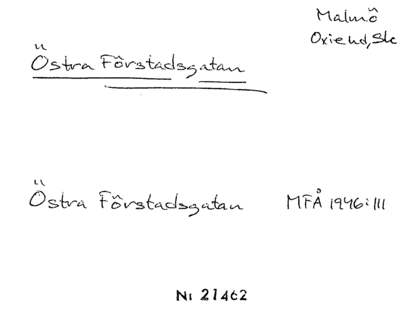 Malmö
Oxie hd, Sk
Östra Förstadsgatan
Östra Förstadsgatan MFÅ 1946:III
Ni 21462